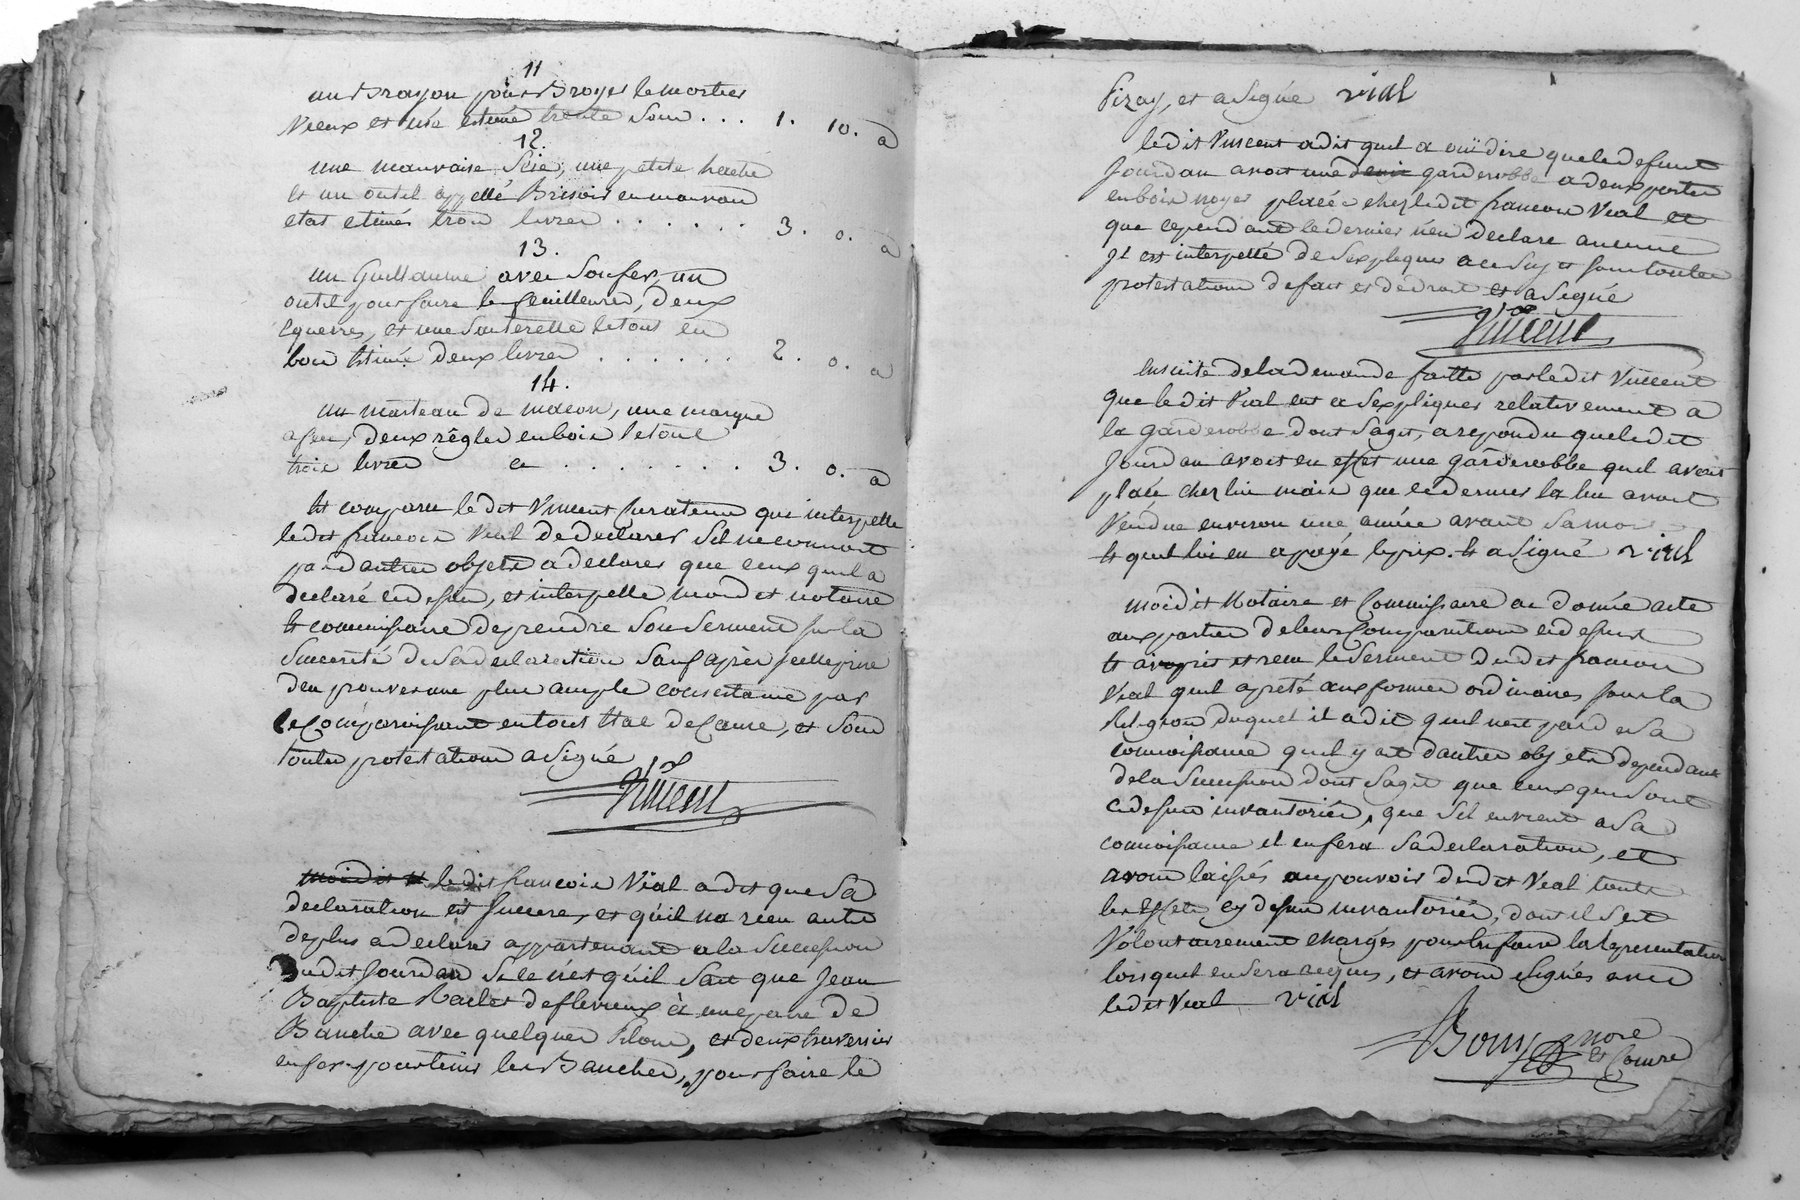 11
un Brayon pour Broyer le mortier
vieux et usé estimé trente Sous . . . 1. 10. a
12.
une mauvaise Scie, une petite hache
et un outil appellé Brisoir en mauvais
etat etimés trois livres . . . . . . 3. 0. a
13.
un Guillaume avec Son fer, un
outil pour faire les feuilleures, deux
equerres, et une Sauterelle le tout en
bois Estimé deux livres . . . . . . 2. 0. a
14.
un marteau de macon, une marque
a feu, deux règles en bois le tout
trois livres . . . . . . . 3. 0. a
Et comparu le dit Vincent Curateur qui interpelle
le dit francois Vial de declarer S'il ne connoit
pas d'autres objets a declarer que ceux quil a
declaré cy dessus, et interpelle mon dit notaire
Et commissaire de prendre Son Serment Sur la
Sincerité de Sa declaration Sauf après
den prouver une plus ample consistance par
le Comparoissant en tout Etat de Cause, et Sous
toutes protestations a Signé
Vincent
moi dit le dit francois Vial a dit que Sa
declaration est Sincere, et qu'il na rien autre
de plus a declarer appartenant a la Succession
du dit Jourdan Si ce n'est qu'il Sait que Jean
Baptiste de flevieux à une paire de
Banche avec quelques, et deux traversiers
en fer pour tenir les Banches, pour faire le
Pizay, et a Signé vial
le dit Vincent a dit quil a oüi dire que le defunt
Jourdan avoit une garderobbe a deux portes
en bois noyer placée chez le dit francois Vial et
que cependant le dernier n'en declare aucune
Il est interpellé de Sexpliquer a ce Sujet Sous toutes
protestations de fait et de droit et a Signé
Vincent
Ensuite de la demande faitte par le dit Vincent
que le dit Vial eut a Sexpliquer relativement a
la garderobbe dont Sagit, a repondu que le dit
Jourdan avoit en effet une garderobbe quil avoit
placé chez lui mais que ce dernier la lui avoit
Vendue environ une année avant Sa mort
Et quil lui en a payé le prix. Et a Signé vial
moi dit Notaire et Commissaire ai donné acte
aux parties de leurs Comparutions cy dessus
Et ai pris et recu le Serment du dit francois
Vial quil a preté aux formes ordinaires Sous la
Religion duquel il a dit quil nest pas de Sa
connoissance quil y ait d'autres objets dependant
de la Succession dont Sagit que ceux qui Sont
cy dessus invantoriés, que Sil en vient a Sa
connoissance il en fera Sa declaration, et
avons laissés au pouvoir du dit Vial touts
les Effets cy dessus invantoriés, dont il S'est
Volontairement chargés pour en faire la representation
lorsquil en Sera requis, et avons Signés avec
le dit Vial vial
nore
et Comre